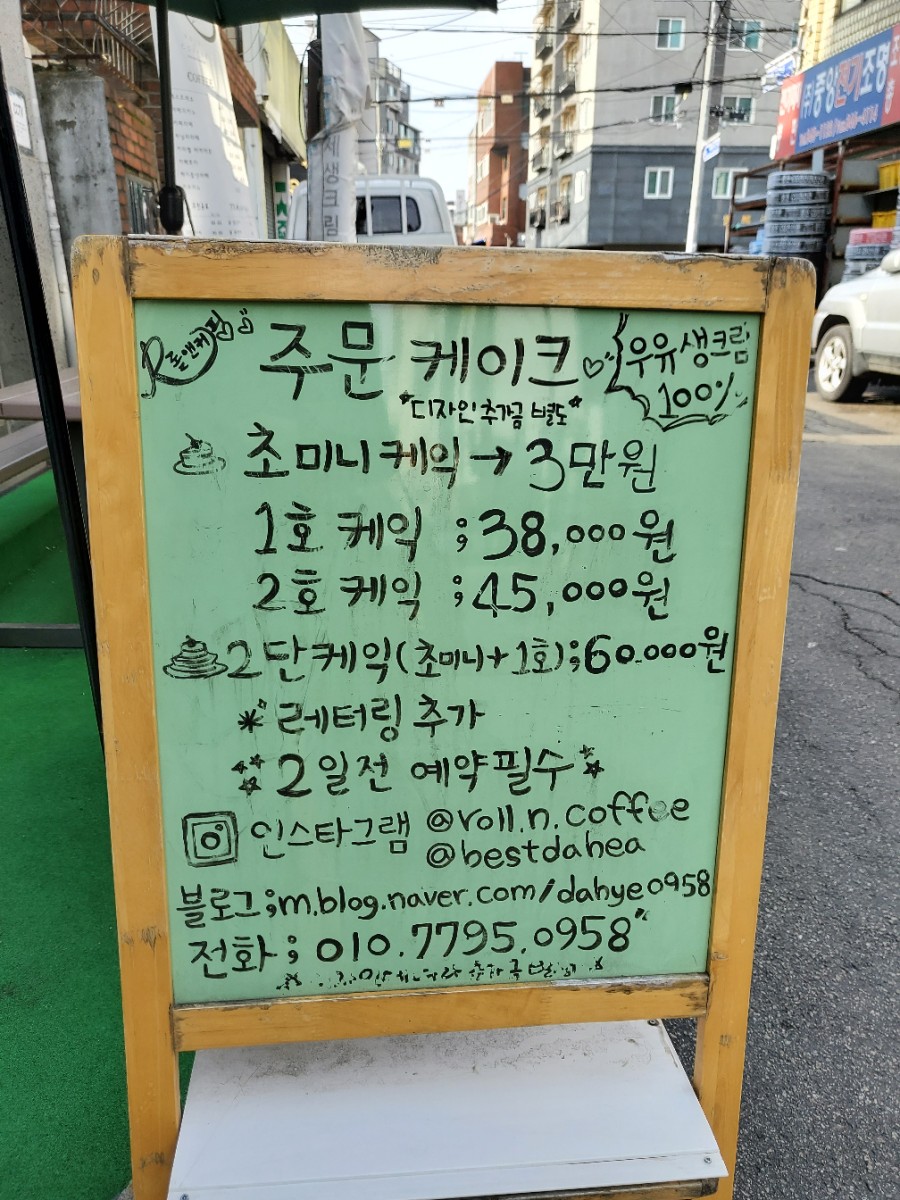 롤앤커피
주문 케이크
우유생크림
100%
*디자인추가금 별도*
초미니케익→3만원
1호 케익 ;38,000원
2호 케익 ;45,000원
2단케익(초미니+1호);60.000원
* 레터링 추가
2일전 예약필수
인스타그램 @roll.n.coffee
@bestdahea
블로그;m.blog.naver.com/dahye0958
전화 ; 010.7795.0958
생크림
(주)중앙전기조명